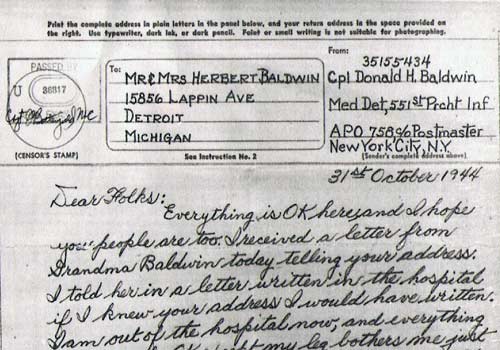 Print the complete address in plain letters in the panel below, and your return address in the space provided on
the right. Use typewriter, dark ink, or dark pencil. Faint or small writing is not suitable for photographing.
PASSED BY
U
36817
(CENSOR'S STAMP)
To:
MR & MRS HERBERT BALDWIN
15856 LAPPIN AVE
DETROIT
MICHIGAN
See Instruction No. 2
From:
35155434
Cpl Donald H. Baldwin
Med Det, 551st Prcht Inf
APO 758 c/o Postmaster
New York City, N.Y.
(Sender's complete address above)
31st October 1944
Dear Folks:
Everything is OK here, and I hope
you people are too. I received a letter from
Grandma Baldwin today telling your address.
I told her in a letter written in the hospital
if I knew your address I would have written.
I am out of the hospital now, and everything
my leg bothers me just